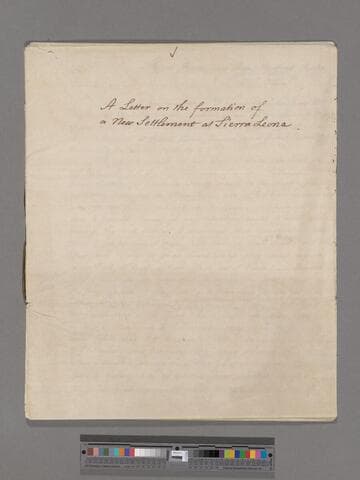 A Letter on the formation of
a New Settlement at Sierra Leona.